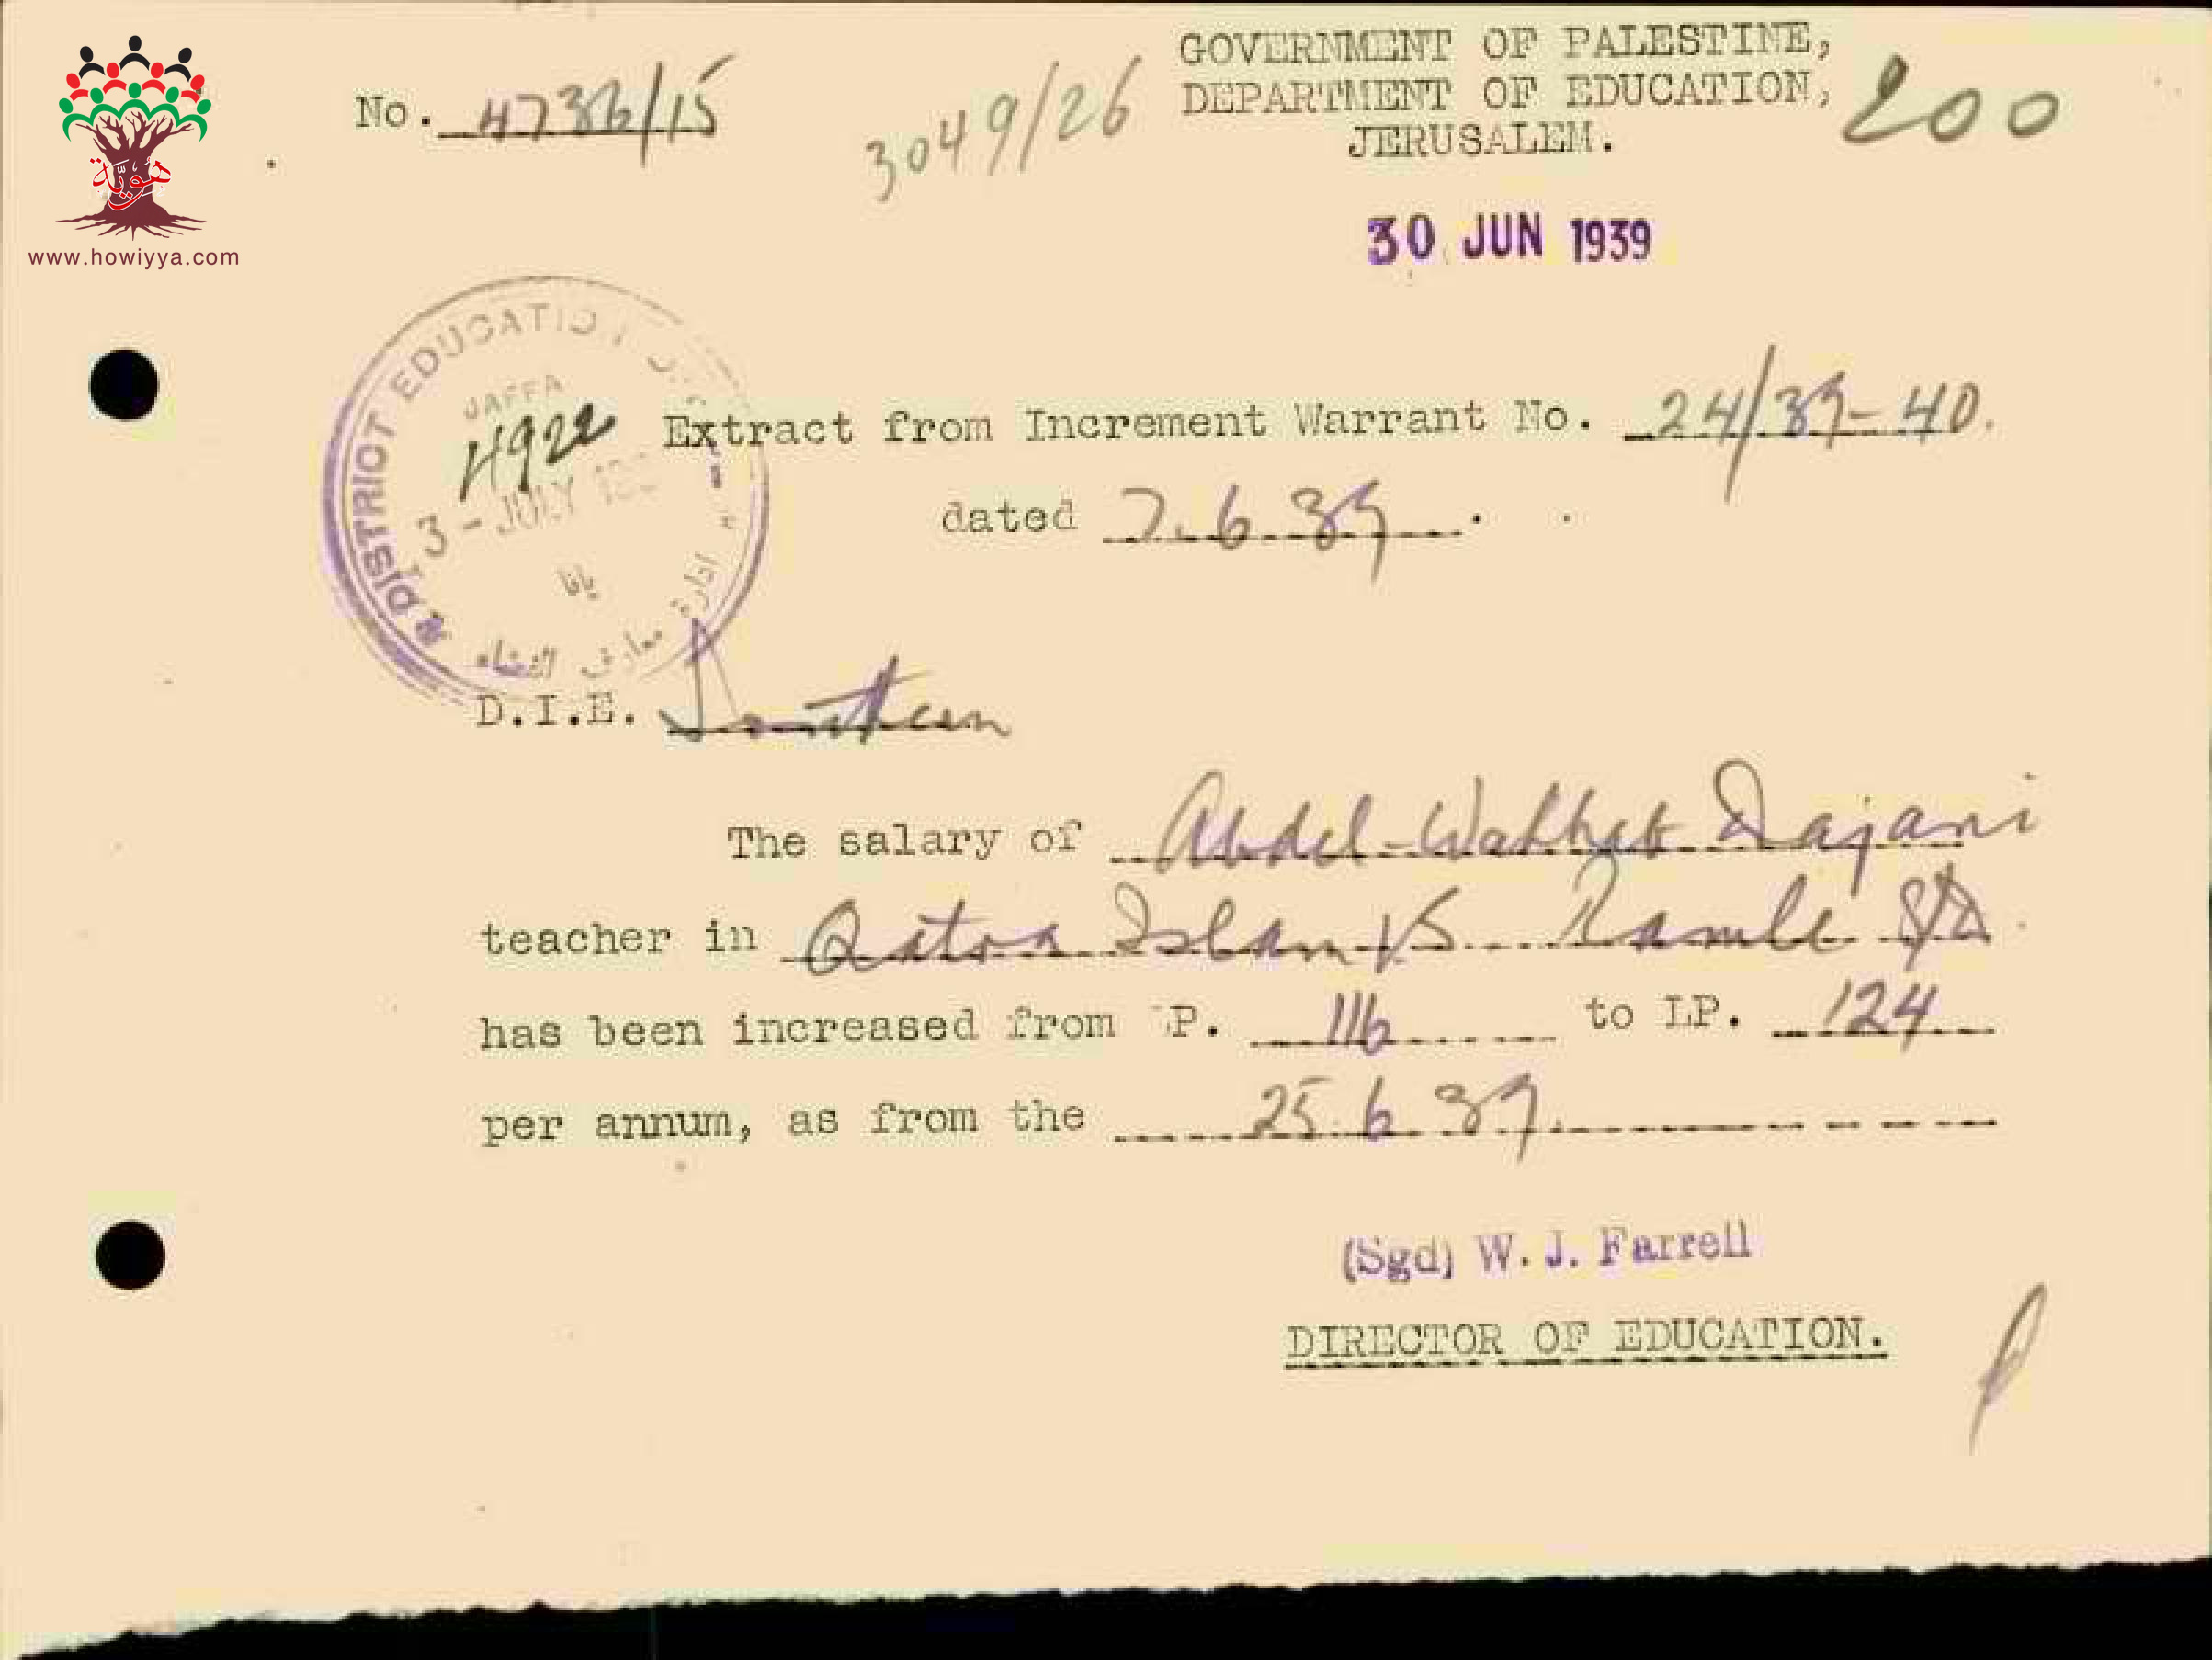 GOVERNMENT OF PALESTINE,
DEPARTMENT OF EDUCATION,
JERUSALEM.
200
No. 4736/15
3049/26
هوية
www.howiyya.com
30 JUN 1939
DISTRICT EDUCATION
JAFFA
4922
3 - JULY 193
يافا
ادارة معارف القضاء
Extract from Increment Warrant No. 24/39-40.
dated 7.6.39.
D.I.E. Southern
The salary of Abdel-Wahhab Dajani
teacher in Qatra Islam V.S. Ramle S/D.
has been increased from P. 116 to LP. 124
per annum, as from the 25.6.39.
(Sgd) W. J. Farrell
DIRECTOR OF EDUCATION.